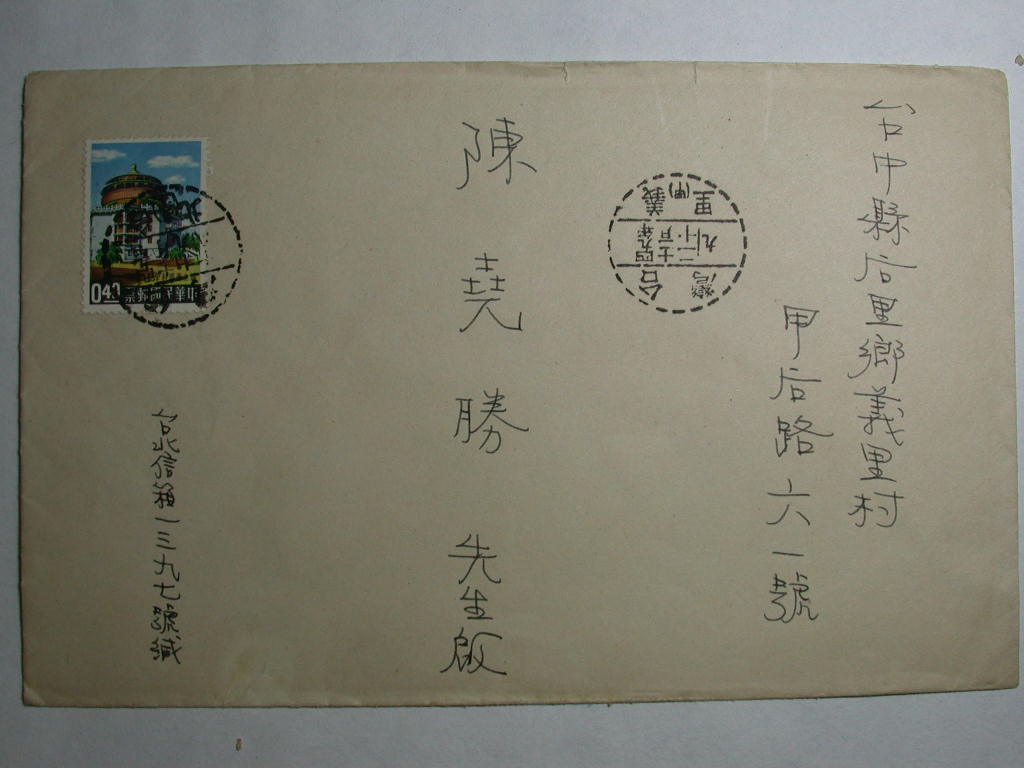 台中縣后里鄉義里村
甲后路六一號
陳堯勝 先生啟
台北信箱一三九七號緘
台灣
義里
(甲)
0.40
中華民國郵票